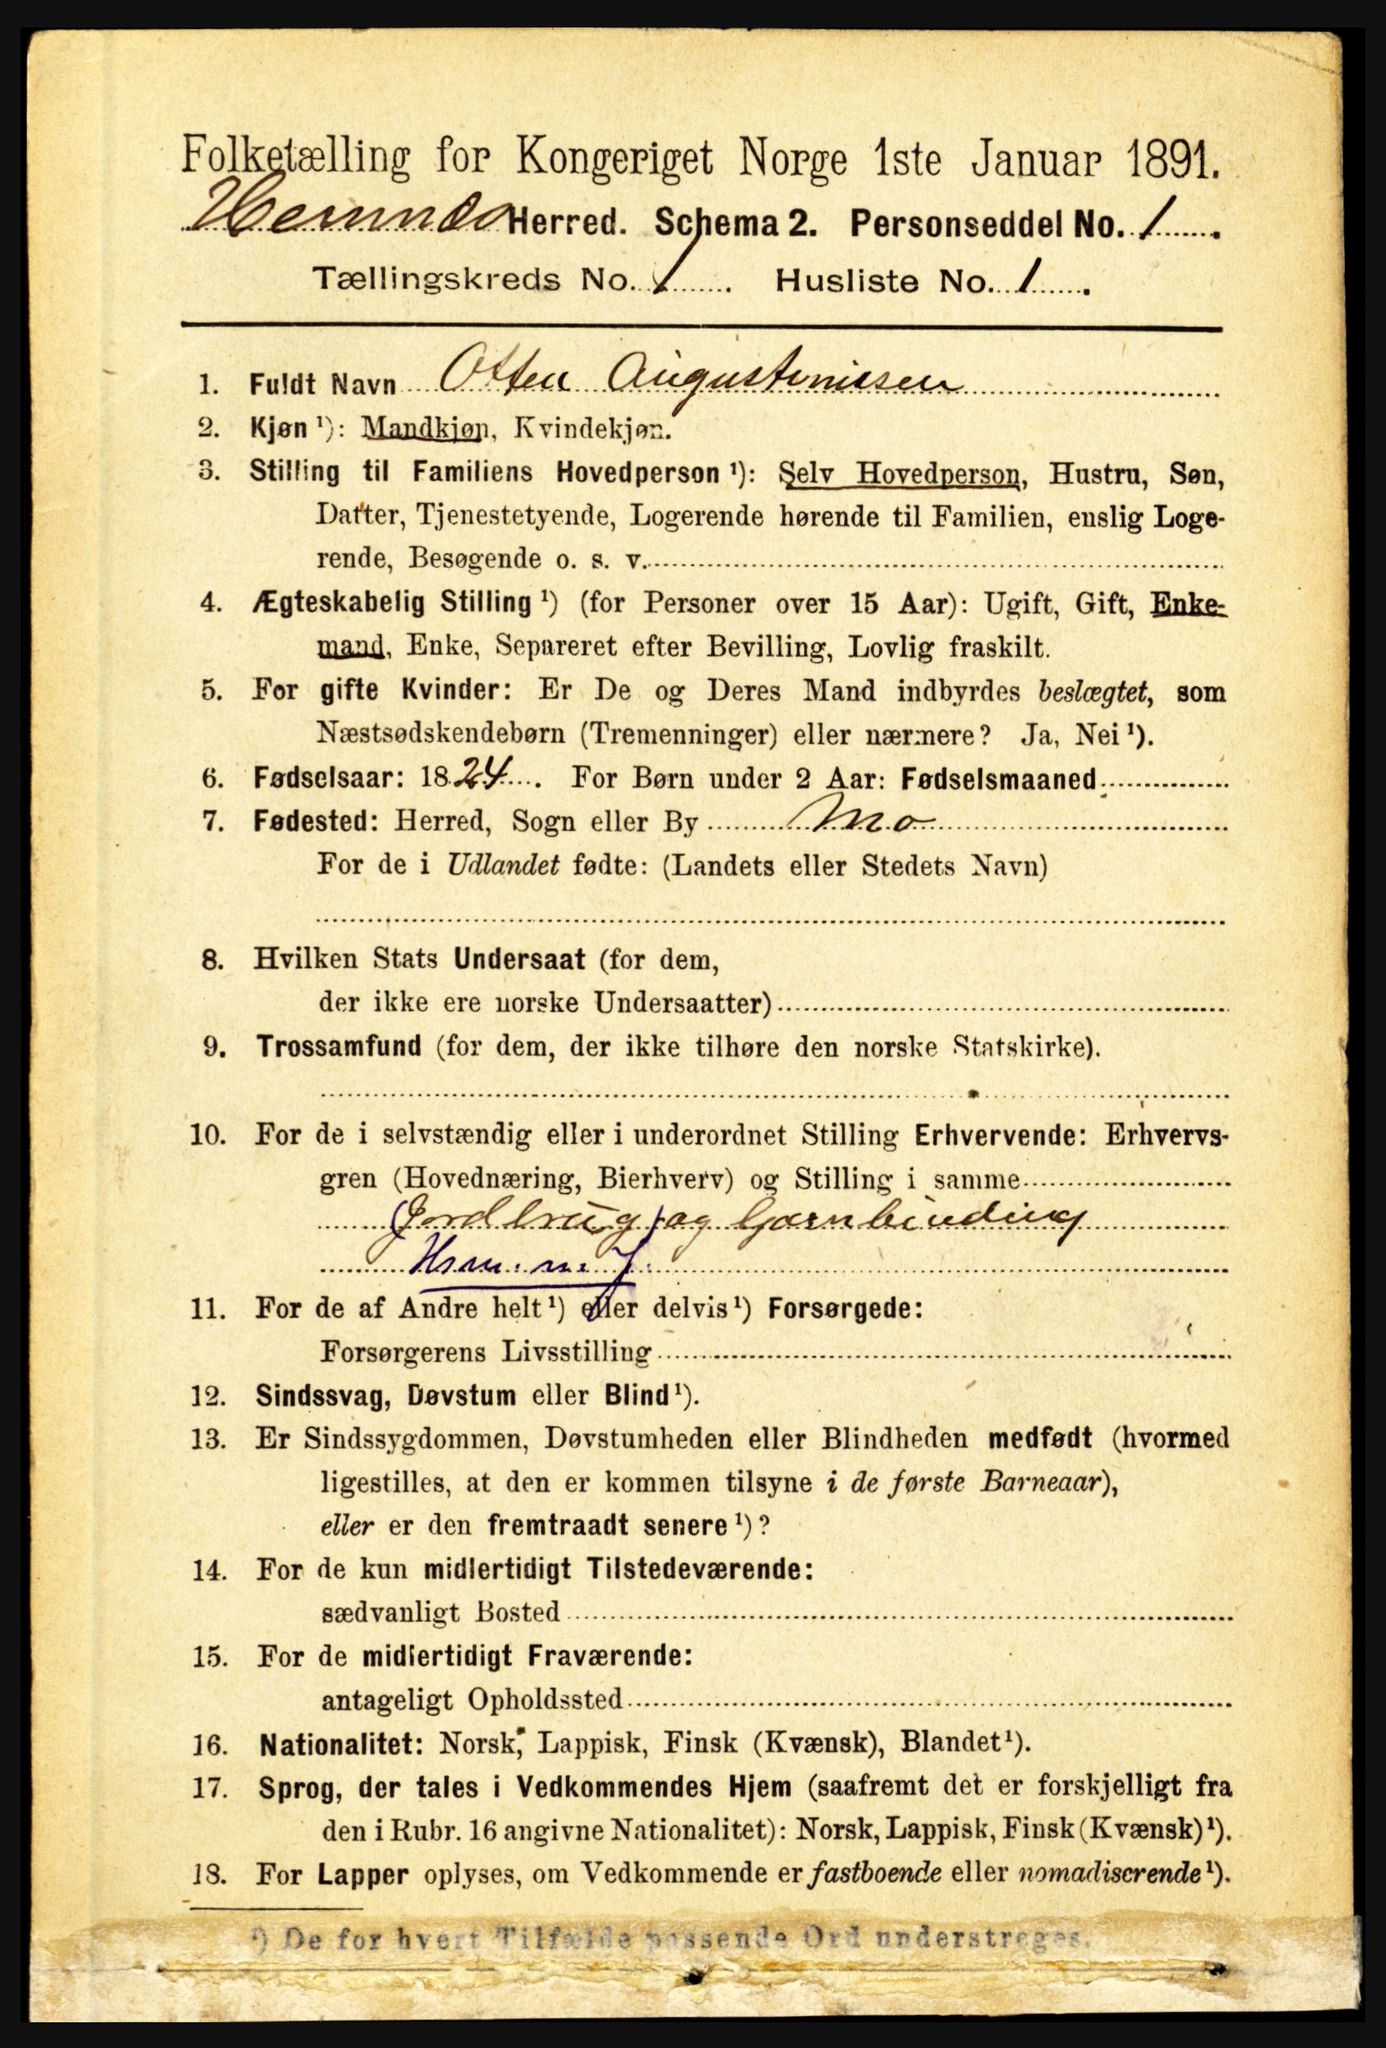 Folketælling for Kongeriget Norge 1ste Januar 1891.
Hemnæs Herred. Schema 2. Personseddel No. 1.
Tællingskreds No. 1. Husliste No. 1.
1. Fuldt Navn Otten Augustinussen
2. Kjøn ¹): Mandkjøn, Kvindekjøn.
3. Stilling til Familiens Hovedperson ¹): Selv Hovedperson, Hustru, Søn,
Datter, Tjenestetyende, Logerende hørende til Familien, enslig Loge-
rende, Besøgende o. s. v.
4. Ægteskabelig Stilling ¹) (for Personer over 15 Aar): Ugift, Gift, Enke-
mand, Enke, Separeret efter Bevilling, Lovlig fraskilt.
5. For gifte Kvinder: Er De og Deres Mand indbyrdes beslægtet, som
Næstsødskendebørn (Tremenninger) eller nærmere? Ja, Nei ¹).
6. Fødselsaar: 1824. For Børn under 2 Aar: Fødselsmaaned
7. Fødested: Herred, Sogn eller By Mo
For de i Udlandet fødte: (Landets eller Stedets Navn)
8. Hvilken Stats Undersaat (for dem,
der ikke ere norske Undersaatter)
9. Trossamfund (for dem, der ikke tilhøre den norske Statskirke).
10. For de i selvstændig eller i underordnet Stilling Erhvervende: Erhvervs-
gren (Hovednæring, Bierhverv) og Stilling i samme
(Jordbrug) og Garnbinding
Hsm. m. J.
11. For de af Andre helt ¹) eller delvis ¹) Forsørgede:
Forsørgerens Livsstilling
12. Sindssvag, Døvstum eller Blind ¹).
13. Er Sindssygdommen, Døvstumheden eller Blindheden medfødt (hvormed
ligestilles, at den er kommen tilsyne i de første Barneaar),
eller er den fremtraadt senere ¹)?
14. For de kun midlertidigt Tilstedeværende:
sædvanligt Bosted
15. For de midlertidigt Fraværende:
antageligt Opholdssted
16. Nationalitet: Norsk, Lappisk, Finsk (Kvænsk), Blandet ¹).
17. Sprog, der tales i Vedkommendes Hjem (saafremt det er forskjelligt fra
den i Rubr. 16 angivne Nationalitet): Norsk, Lappisk, Finsk (Kvænsk) ¹).
18. For Lapper oplyses, om Vedkommende er fastboende eller nomadiserende ¹).
¹) De for hvert Tilfælde passende Ord understreges.